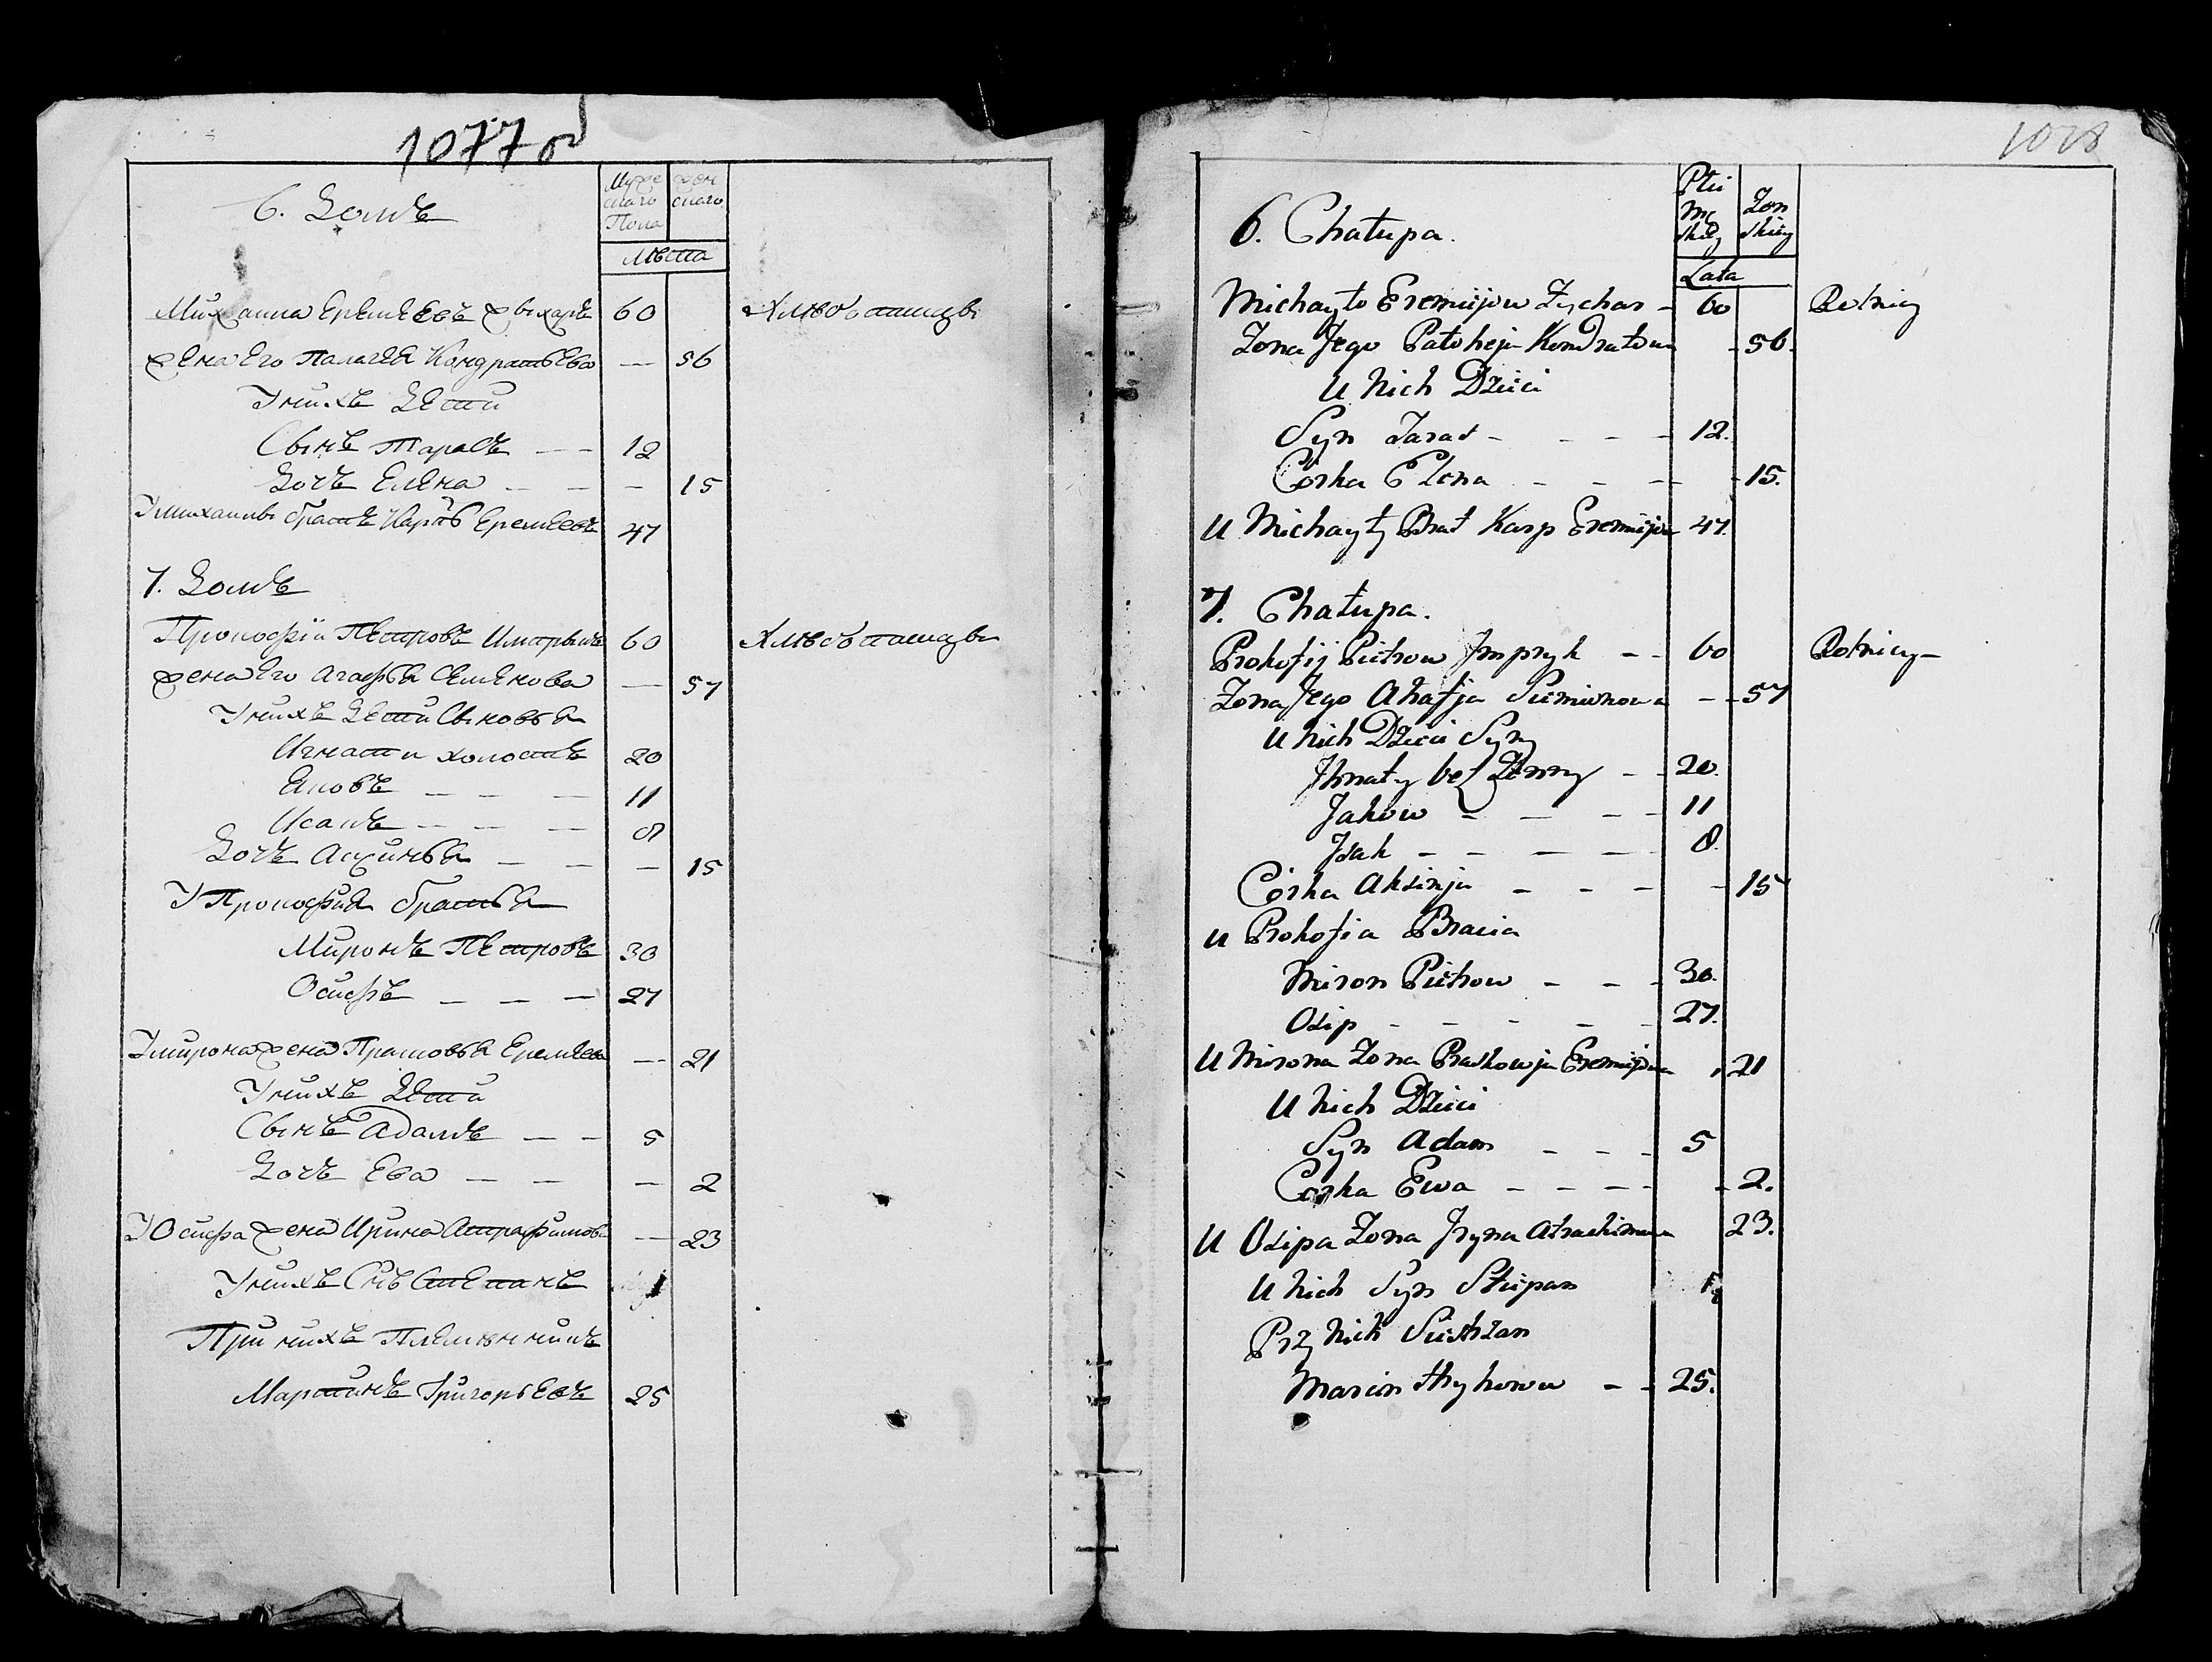 1077 об
6. Домъ
Мужескаго Пола
Женскаго
Лѣта
Михаила Еремѣевъ Жыхарь 60 Хлѣбопашцы
Жена Его Палагея Кондратьева — 56
У нихъ Дети
Сынъ Тарасъ — — 12
Дочь Елена — — — 15
У михаилы братъ Карпъ Еремеевъ 47
7. Домъ
Прокофій Петровъ Импрыкъ 60 Хлѣбопашцы
Жена Его Агафья Семенова — 57
У нихъ Дети Сыновья
Игнати холостъ 20
Яковъ — — — 11
Исакъ — — — 8
Дочь Аксинья — — — 15
У Прокофия братья
Миронъ Петровъ 30
Осифъ — — — 27
У мирона жена Прасковья Еремеева — 21
У нихъ Дети
Сынъ Адамъ — — 5
Дочь Ева — — — 2
У Осифа жена Ирина — 23
У нихъ Снъ Степанъ 1
При нихъ Племянникъ
Мартинъ Григорьевъ 25
1078
6. Chałupa.
Płci Męskiej
Żonskiej
Lata
Michayło Eremiejow Zychar - 60 Rolnicy
Zona Jego Pałoheja Kondratowa - 56.
U Nich Dzieci
Syn Taras - - - - 12.
Córka Elena - - - - 15.
U Michayły Brat Karp Eremiejow 47.
7. Chałupa.
Prokofij Pietrow Jmpryk - - 60 Rolnicy -
Zona Jego Ahafja Siemionowa - - 57
U Nich Dzieci Syny
Jhnaty bez Żenny - - 20.
Jakow - - - - 11
Jsak - - - - - 8.
Córka Aksinja - - - - 15
U Prokofia Bracia
Miron Pietrow - - - 30.
Osip - - - - - 27.
U Mirona Zona Praskowja Eremiejowa 21
U Nich Dzieci
Syn Adam - - - 5
Corka Ewa - - - - - 2.
U Osipa Zona Jryna 23.
U Nich Syn Stiepan 1
Przy Nich Siestrzan
Marcin Hryhorow - - 25.